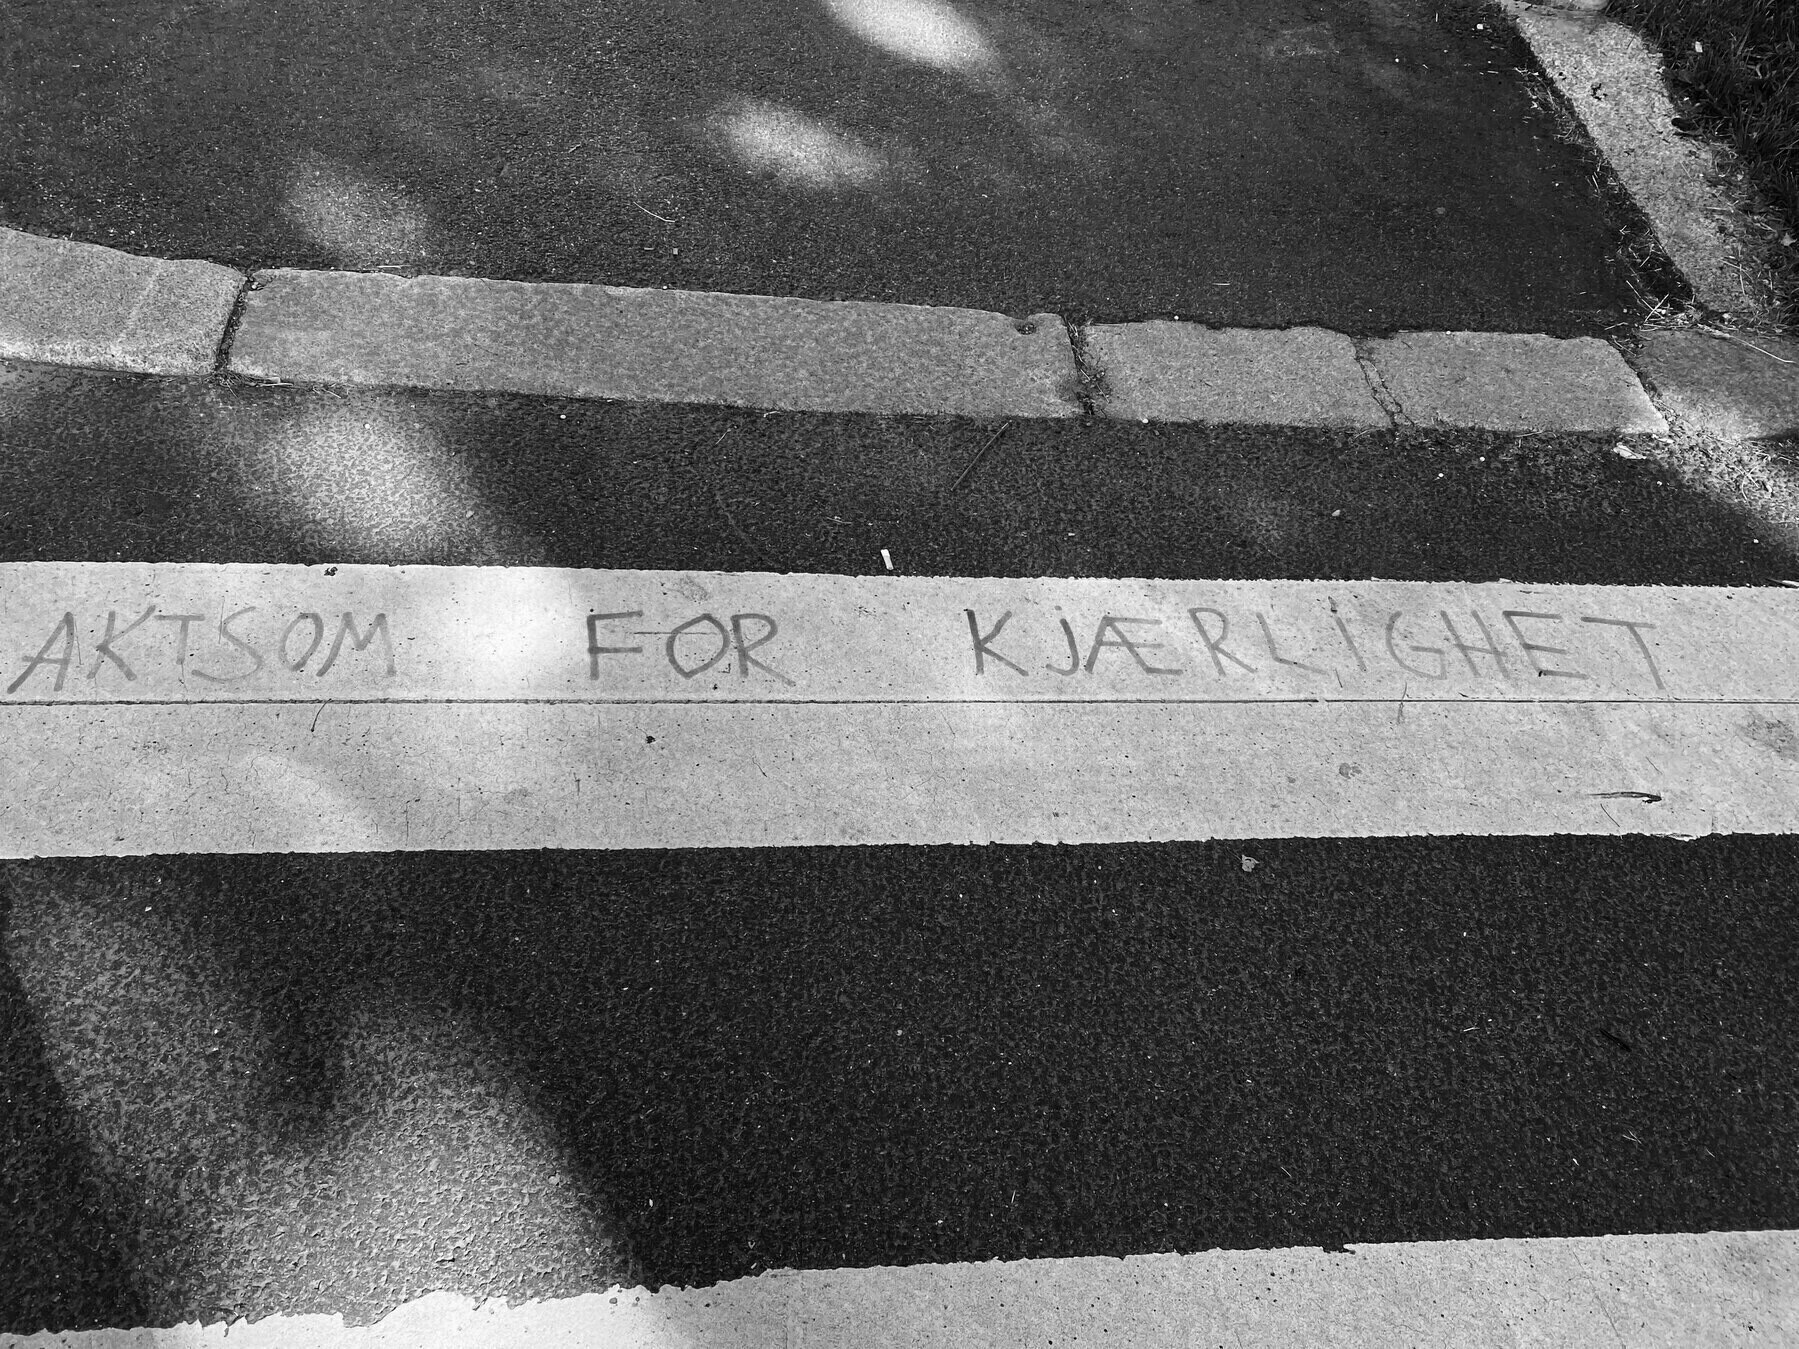 AKTSOM FOR KJÆRLIGHET